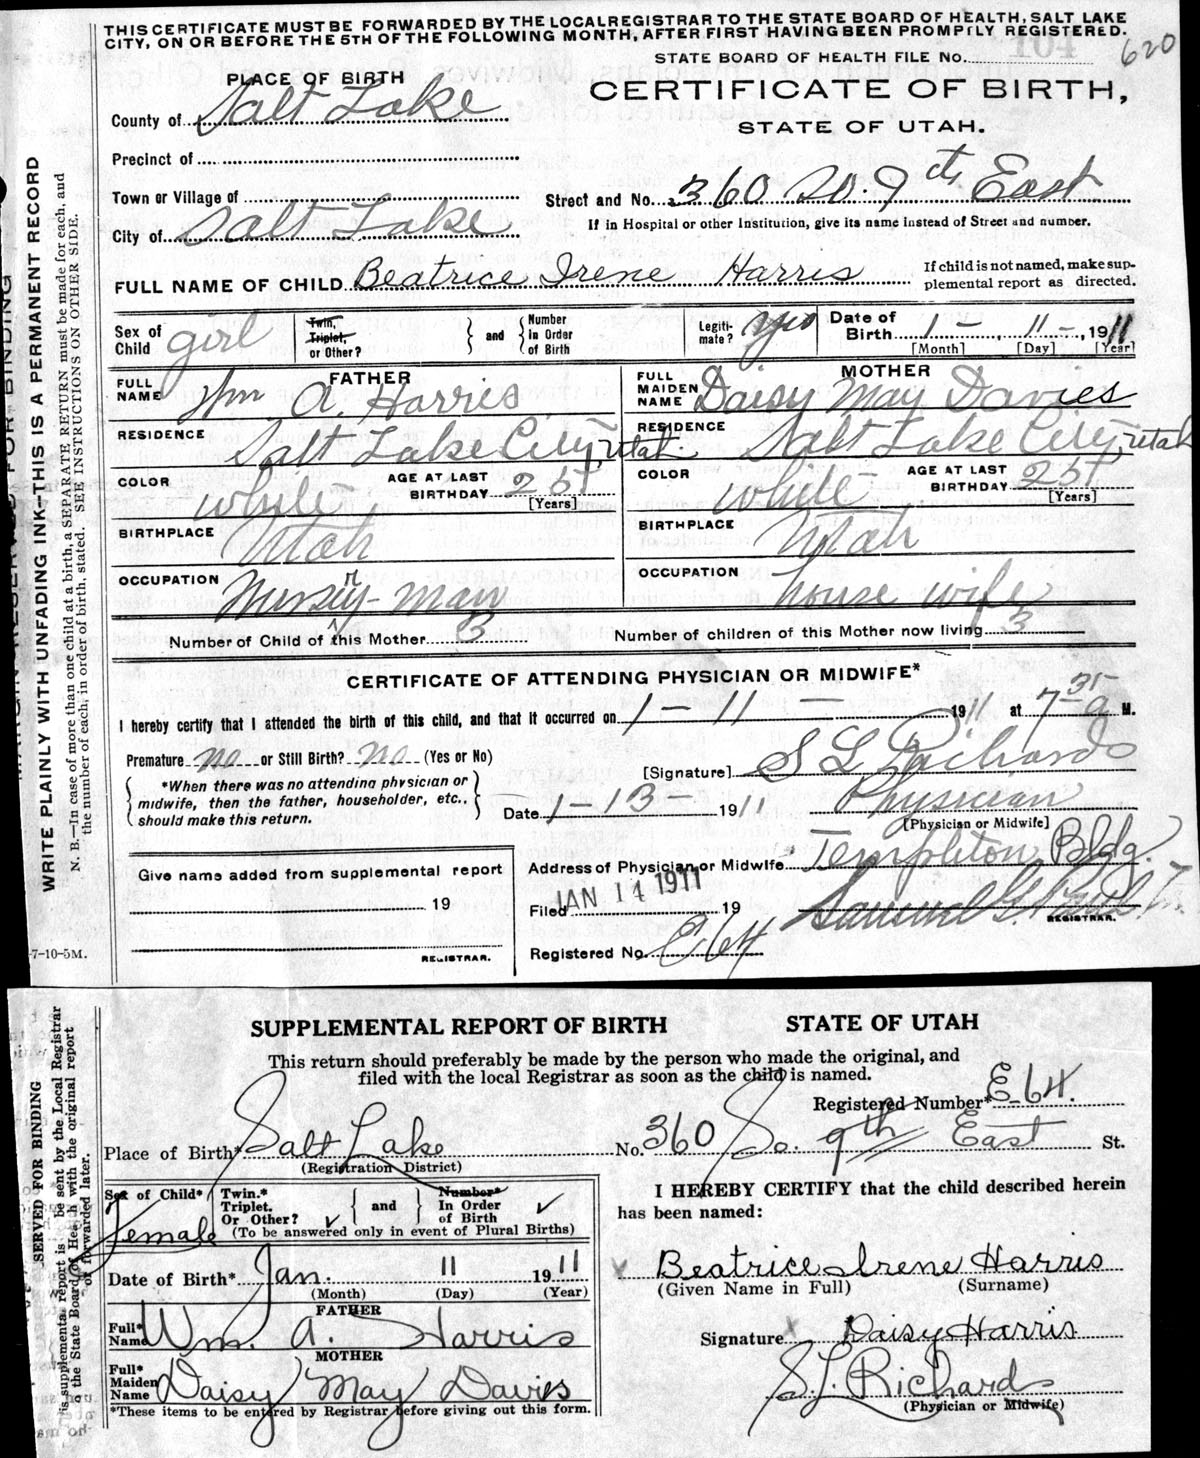 THIS CERTIFICATE MUST BE FORWARDED BY THE LOCAL REGISTRAR TO THE STATE BOARD OF HEALTH, SALT LAKE
CITY, ON OR BEFORE THE 5TH OF THE FOLLOWING MONTH, AFTER FIRST HAVING BEEN PROMPTLY REGISTERED.
STATE BOARD OF HEALTH FILE No. 104 620
PLACE OF BIRTH
CERTIFICATE OF BIRTH,
STATE OF UTAH.
County of Salt Lake
Precinct of
Town or Village of
Street and No. 360 So. 9th East
If in Hospital or other Institution, give its name instead of Street and number.
City of Salt Lake
FULL NAME OF CHILD Beatrice Irene Harris
If child is not named, make sup-
plemental report as directed.
Sex of Child girl
Twin, Triplet, or Other? } and { Number in Order of Birth
Legiti-mate? yes
Date of Birth 1 - 11 -, 1911
[Month] [Day] [Year]
FATHER
FULL NAME Wm A. Harris
MOTHER
FULL MAIDEN NAME Daisy May Davies
RESIDENCE Salt Lake City, Utah.
RESIDENCE Salt Lake City, Utah
COLOR white AGE AT LAST BIRTHDAY 25 [Years]
COLOR white AGE AT LAST BIRTHDAY 25 [Years]
BIRTHPLACE Utah
BIRTHPLACE Utah
OCCUPATION Nursry-man
OCCUPATION house wife
Number of Child of this Mother 3
Number of children of this Mother now living 3
CERTIFICATE OF ATTENDING PHYSICIAN OR MIDWIFE*
I hereby certify that I attended the birth of this child, and that it occurred on 1 - 11 - 1911 at 7 35 a M.
Premature no or Still Birth? no (Yes or No)
[Signature] S L Richards
*When there was no attending physician or
midwife, then the father, householder, etc.,
should make this return.
Date 1-13- 1911
Physician
[Physician or Midwife]
Give name added from supplemental report
19
REGISTRAR.
Address of Physician or Midwife Templeton Bldg.
Filed JAN 14 1911 19
Samuel G.
REGISTRAR.
Registered No. E 64
7-10-5M.
WRITE PLAINLY WITH UNFADING INK—THIS IS A PERMANENT RECORD
N. B.—In case of more than one child at a birth, a SEPARATE RETURN must be made for each, and
the number of each, in order of birth, stated. SEE INSTRUCTIONS ON OTHER SIDE.
SUPPLEMENTAL REPORT OF BIRTH STATE OF UTAH
This return should preferably be made by the person who made the original, and
filed with the local Registrar as soon as the child is named.
Registered Number* E-64.
Place of Birth* Salt Lake
(Registration District)
No. 360 So. 9th East St.
Sex of Child* Female
Twin.* Triplet. Or Other? } and { Number* In Order of Birth
(To be answered only in event of Plural Births)
Date of Birth* Jan. 11 1911
(Month) (Day) (Year)
FATHER
Full* Name Wm. A. Harris
MOTHER
Full* Maiden Name Daisy May Davis
*These items to be entered by Registrar before giving out this form.
I HEREBY CERTIFY that the child described herein
has been named:
x Beatrice Irene Harris
(Given Name in Full) (Surname)
Signature x Daisy Harris.
S.L. Richards
(Physician or Midwife)
SERVED FOR BINDING
is supplemental report is to be sent by the Local Registrar
to the State Board of Health with the original report
or forwarded later.